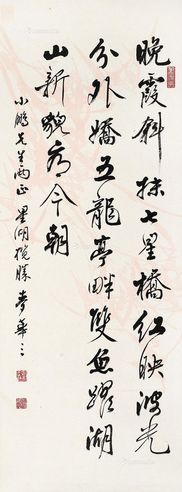 晚霞斜抹七星橋紅映波光
分外嬌五龍亭畔雙魚躍湖
山新貌看今朝
小鵬先生兩正 星湖攬勝 夢華